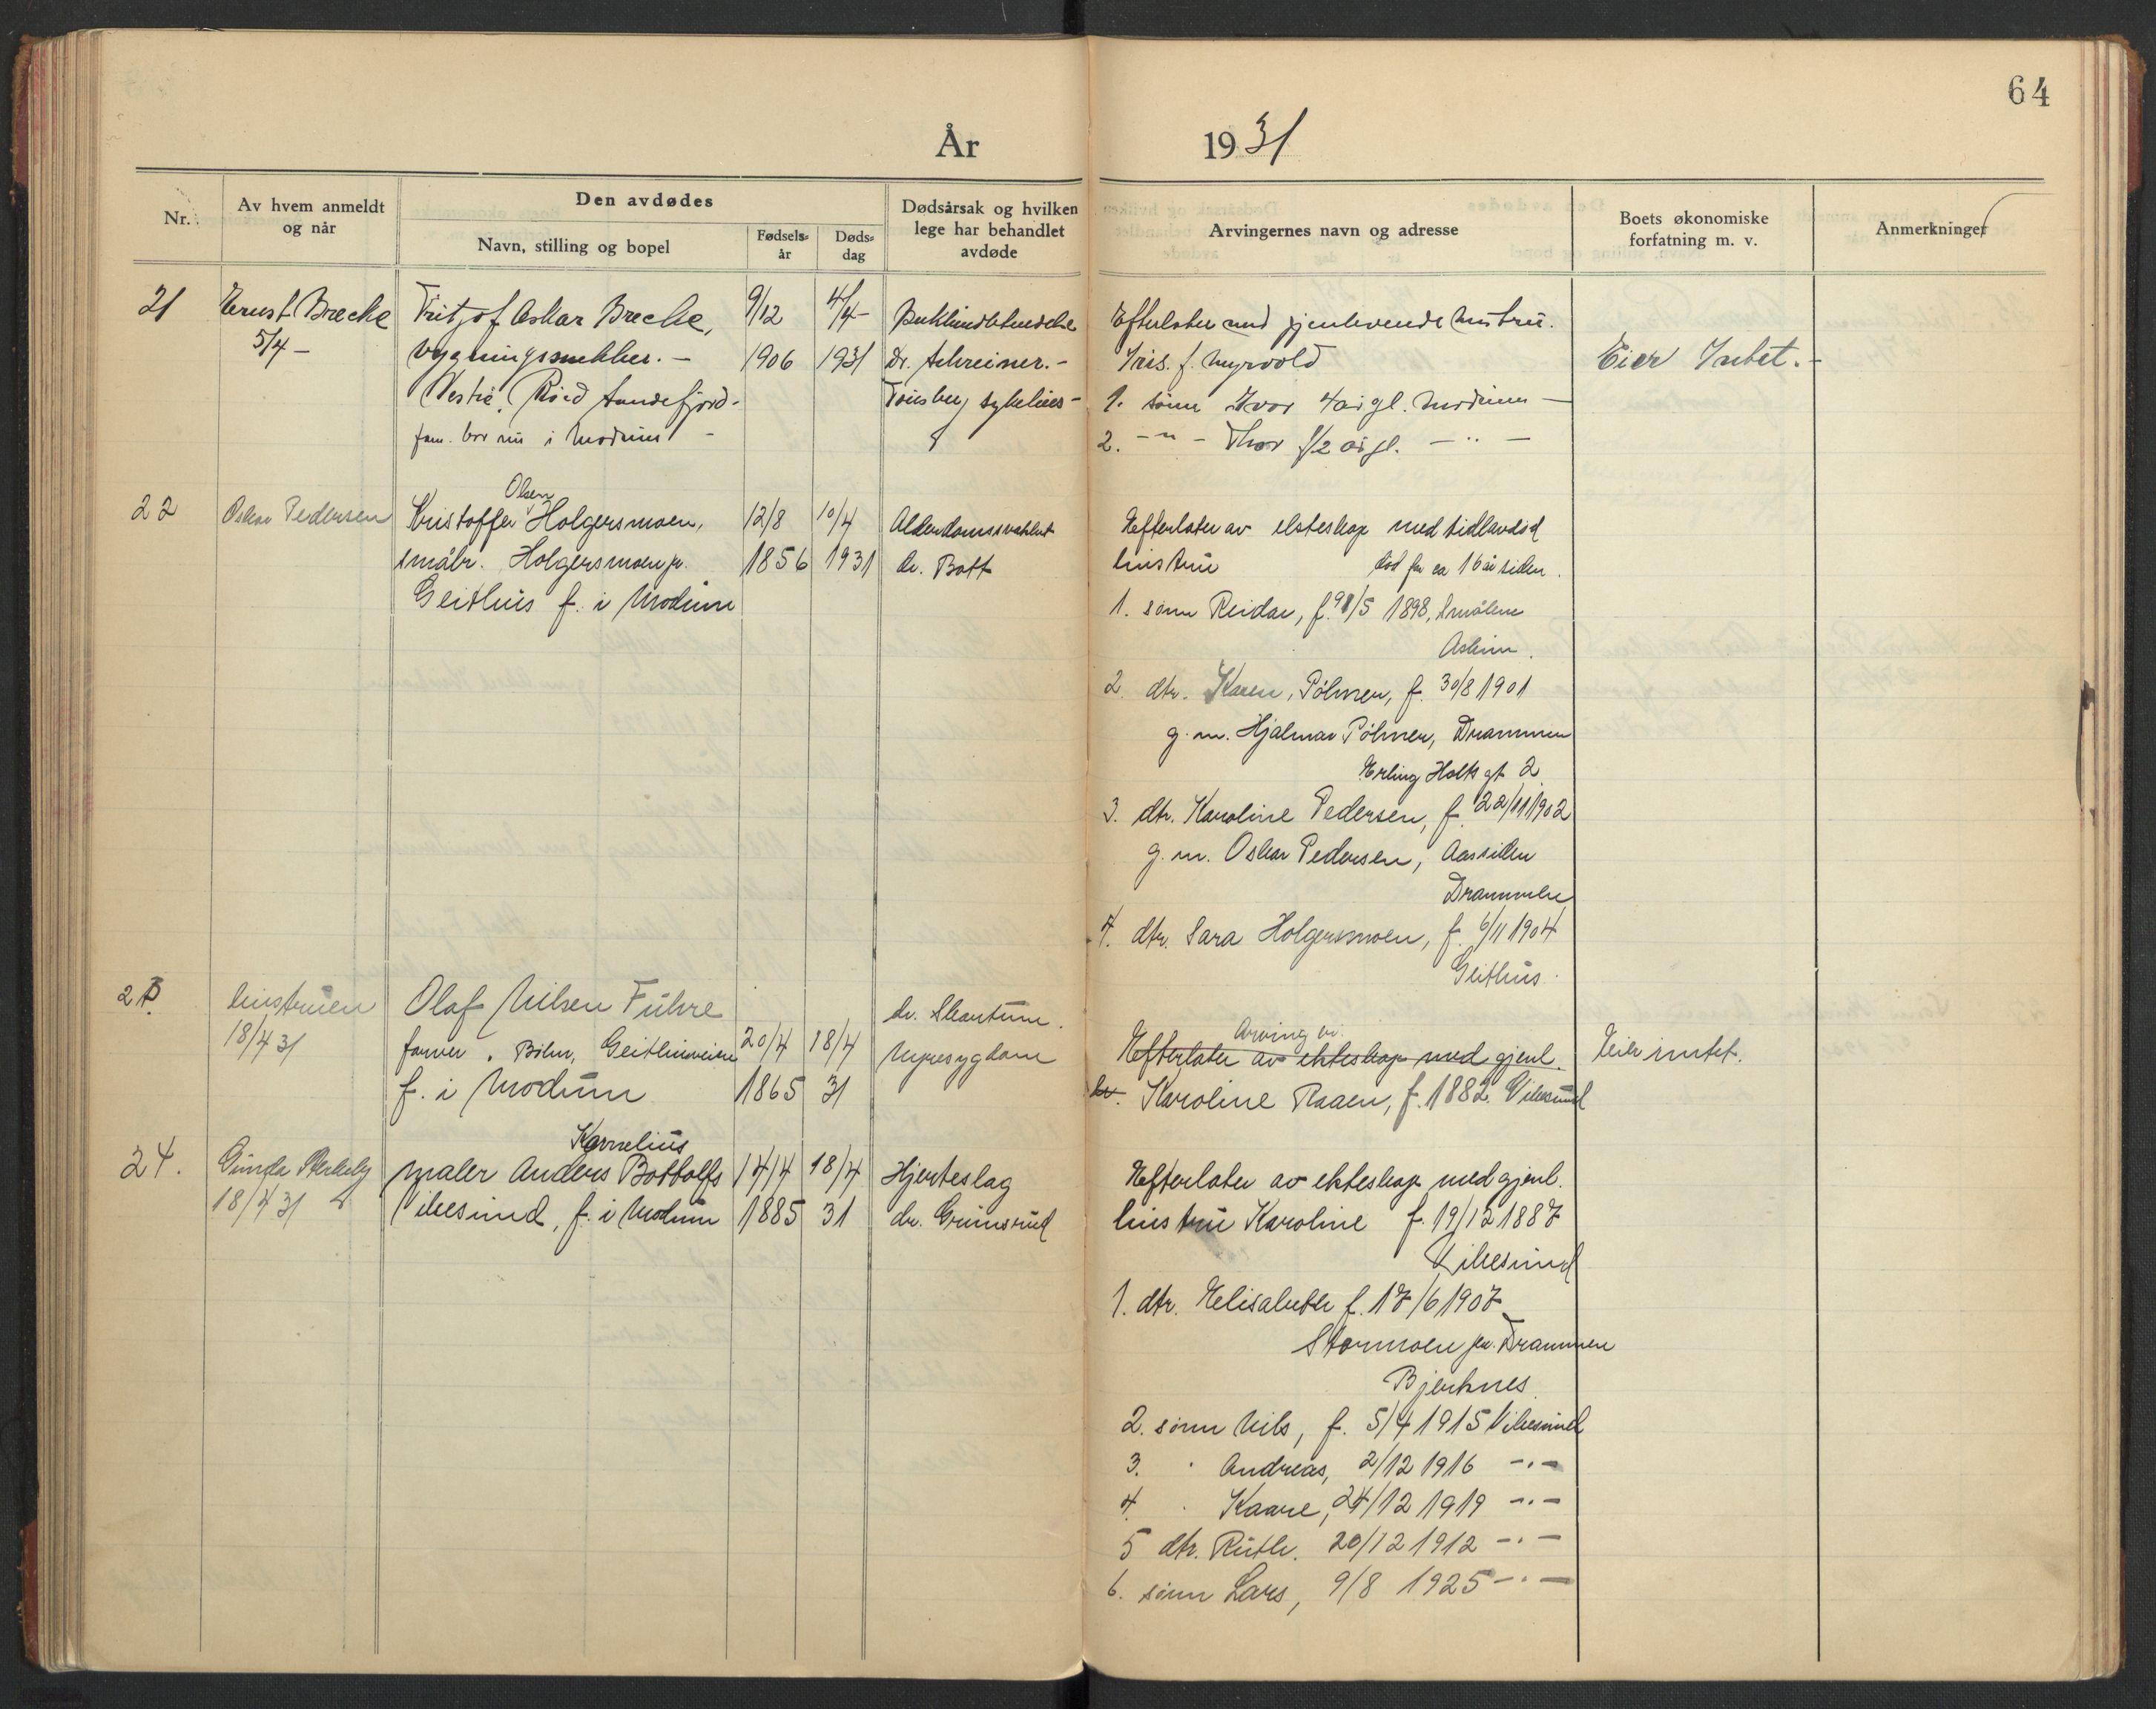 64
År 1931
Nr.
Av hvem anmeldt og når
Den avdødes
Navn, stilling og bopel
Fødsels-år
Døds-dag
Dødsårsak og hvilken lege har behandlet avdøde
Arvingernes navn og adresse
Boets økonomiske forfatning m. v.
Anmerkninger
21
Ernst Brecke
5/4 –
Fritjof Oskar Brecke,
bygningssnekker. –
Sandefjord –
fam. bor nu i Modum –
9/12
1906
4/4 –
1931
Dr. Schreiner. –
Efterlater med gjenlevende hustru.
Iris. f. Myrvold
1. sønn Ivar 4 år gl. Modum –
2. – " – Thor 1/2 år gl. – " –
Eier Intet. –
22
Oskar Pedersen
Olsen
Kristoffer Holgersmoen,
småbr. Holgersmoen p.
Geithus f. i Modum
12/8
1856
10/4
1931
Alderdomssvakhet
dr. Bott
Efterlater av ekteskap med tidl. avdød
hustru død for ca 16 år siden.
1. sønn Reidar, f. /5 1898, Smålene
Askim.
2. dtr. Karen, Pólmer, f. 30/8 1901
g. m. Hjalmar Pólmer, Drammen
Erling Holts gt 2.
3. dtr. Karoline Pedersen, f. 22/11 1902
g. m. Oskar Pedersen, Aassiden
Drammen
4. dtr. Sara Holgersmoen, f. 6/11 1904
Geithus.
23.
hustruen
18/4 31
Olaf Nilsen Fuhre
farver, Geithusveien
f. i Modum
20/4
1865
18/4
31
dr. Skontum.
Nyresygdom
Arving er.
Efterlater av ekteskap med gjenl.
hu. Karoline Raaen, f. 1882. Vikesund
Eier intet.
24.
Gunda
18/4 31
Kornelius
maler Anders Bottolfs
Vikesund, f. i Modum
14/4
1885
18/4
31
Hjerteslag
dr. Grimsrud
Efterlater av ekteskap med gjenl.
hustru Karoline f. 19/12 1887
Vikesund
1. dtr. Elisabeth f. 17/6 1907
Stormoen pr. Drammen
Bjerknes
2. sønn Nils, f. 5/4 1915 Vikesund
3. " Andreas, 2/12 1916 – " –
4. " Kaare, 24/12 1919 – " –
5 dtr. Ruth. 20/12 1912 – " –
6. sønn Lars, 9/8 1925 – " –